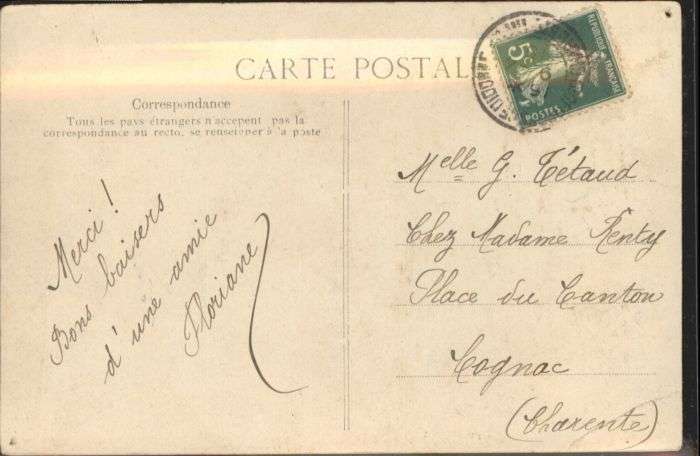 CARTE POSTALE
Correspondance
Tous les pays étrangers n'accepent pas la
correspondance au recto, se renseigner à la poste
5c
RÉPUBLIQUE FRANÇAISE
POSTES
Merci !
Bons baisers
d'une amie
Floriane
Melle G. Tétaud
Chez Madame Renty
Place du Canton
Cognac
(Charente)